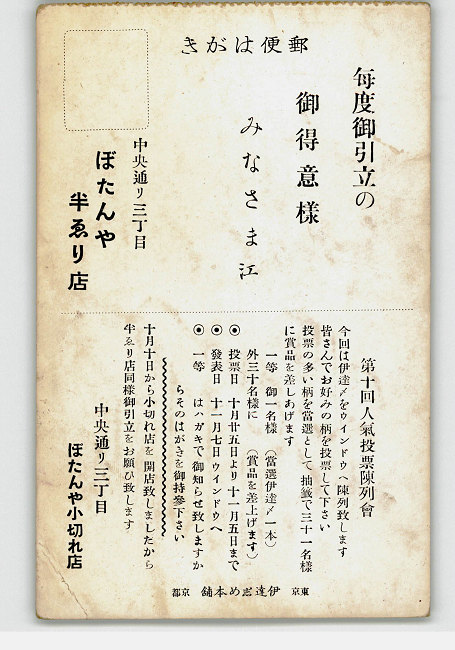 きがは便郵
毎度御引立の
御得意様
みなさま江
中央通り三丁目
ぼたんや
半ゑり店
第十回人氣投票陳列會
今回は伊達〆をウインドウへ陳列致します
皆さんでお好みの柄を投票して下さい
投票の多い柄を當選として抽籤で三十一名様
に賞品を差しあげます
一等 御一名様 (當選伊達〆一本)
外三十名様に (賞品を差上げます)
◉ 投票日 十月廿五日より十一月五日まで
◉ 發表日 十一月七日ウインドウへ
◉ 一等 はハガキで御知らせ致しますか
らそのはがきを御持參下さい
十月十日から小切れ店を開店致しましたから
半ゑり店同様御引立をお願ひ致します
中央通り三丁目
ぼたんや小切れ店
都京 舗本めじ達伊 京東